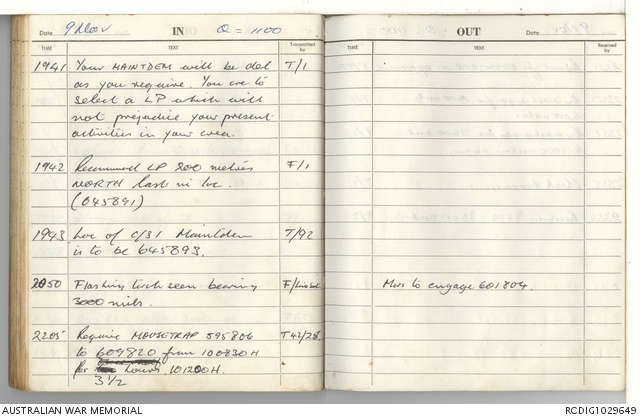 Date 9 Nov IN Q = 1100
TIME TEXT Transmitted by
1941 Your MAINTDEM will be del T/1
as you require. You are to
select a LP which will
not prejudice your present
activities in your area.
1942 Recommend LP 200 metres F/1
NORTH last ni loc.
(045891)
1943 Loc of C/S1 Maintdem T/92
is to be 645893.
2050 Flashing torch seen bearing
3000 mils.
2205 Require MOUSETRAP 595806 T42/28
to 609820 from 100830H
for hours 101200H.
3 1/2
OUT Date
TIME TEXT Received by
Mors to engage 601804.
AUSTRALIAN WAR MEMORIAL RCDIG1029649